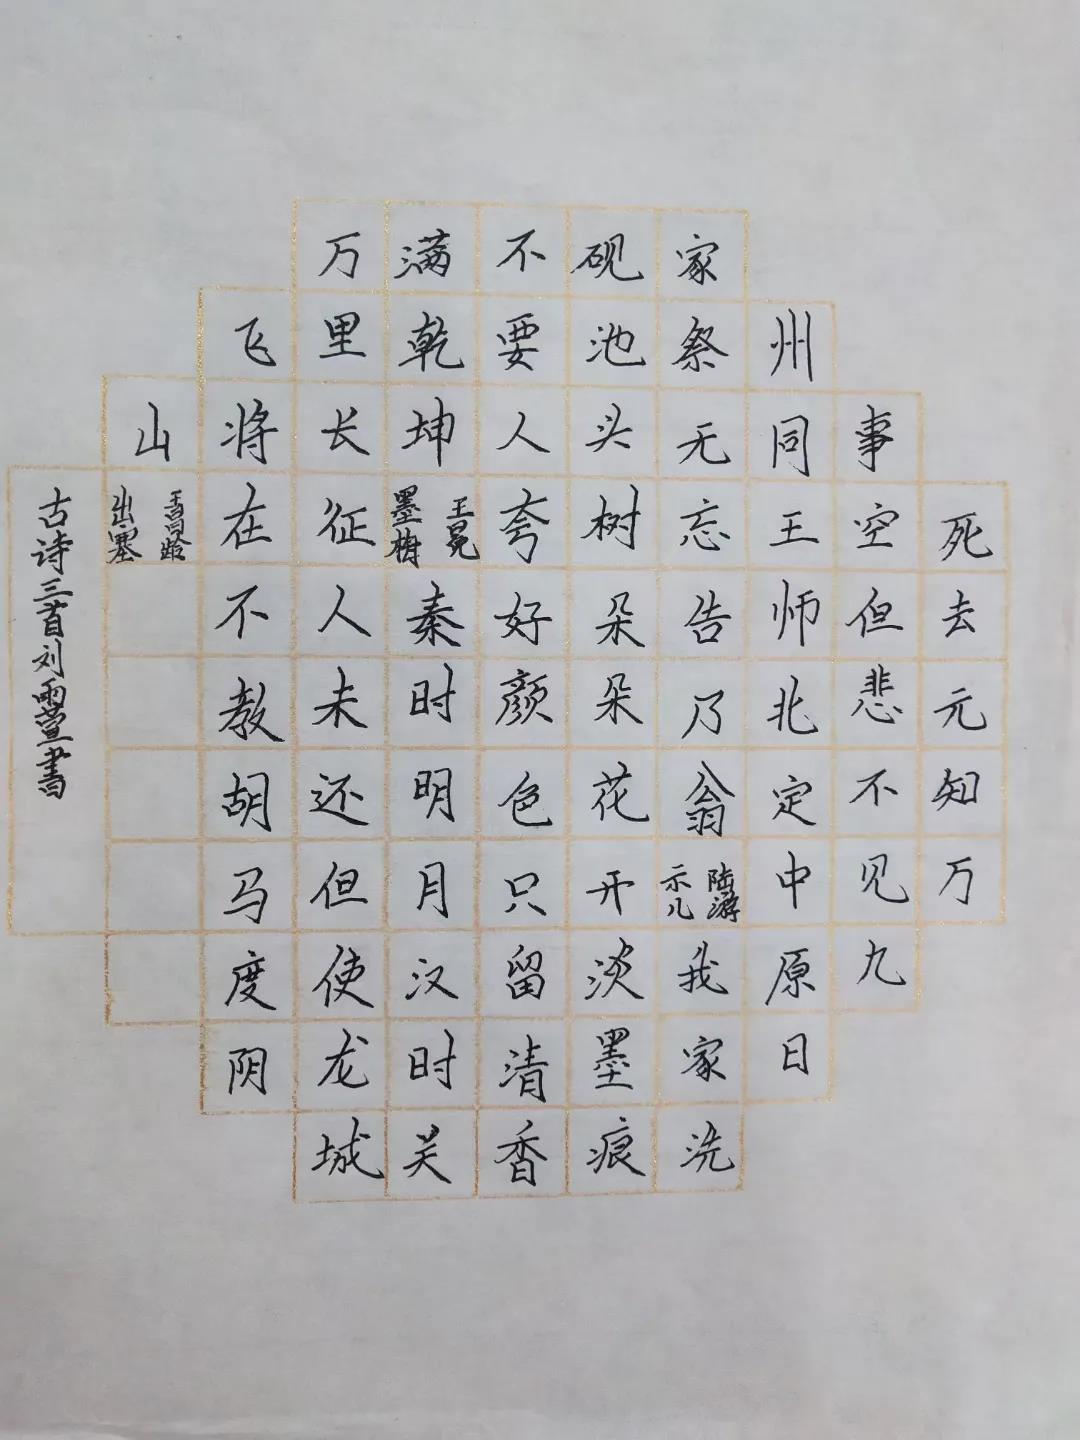 死去元知万
事空但悲不见九
州同王师北定中原日
家祭无忘告乃翁 陆游 示儿 我家洗
砚池头树朵朵花开淡墨痕
不要人夸好颜色只留清香
满乾坤 王冕 墨梅 秦时明月汉时关
万里长征人未还但使龙城
飞将在不教胡马度阴
山 王昌龄 出塞
古诗三首刘雨萱書